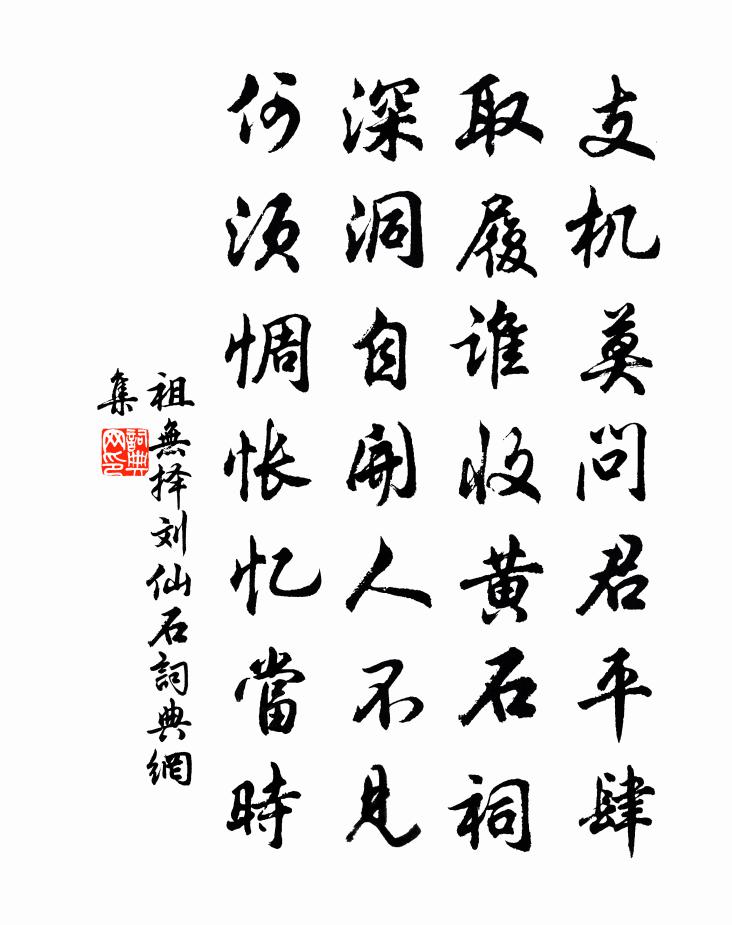 支机莫问君平肆
取履谁收黄石祠
深洞自开人不见
何须惆怅忆當時
祖無择刘仙石詞典網
集
詞典
网印